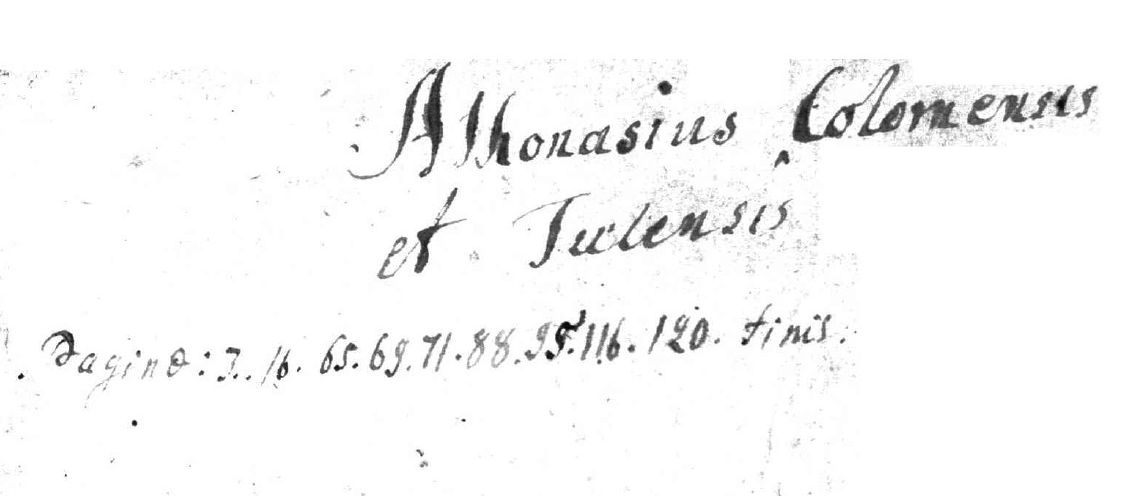 Athonasius Colomensis
et Tutensis
Pagine: 3. 16. 65. 69. 71. 88. 95. 116. 120. finis.